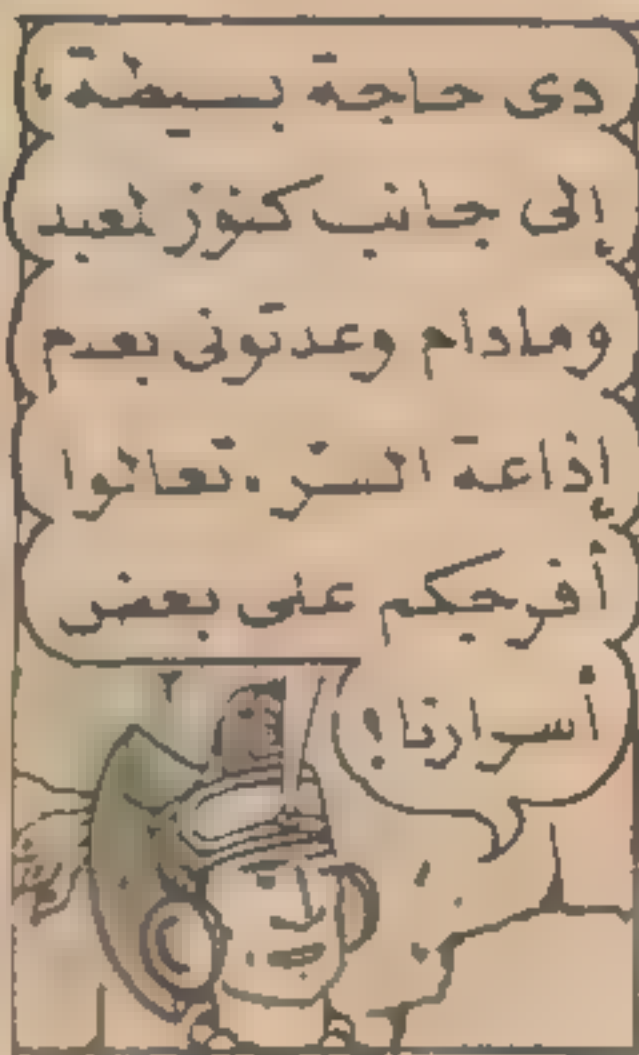 دى حاجة بسيطة،
إلى جانب كنوز لمعبد
ومادام وعدتونى بعدم
إذاعة السر. تعالوا
أفرجكم على بعض
أسرارنا!